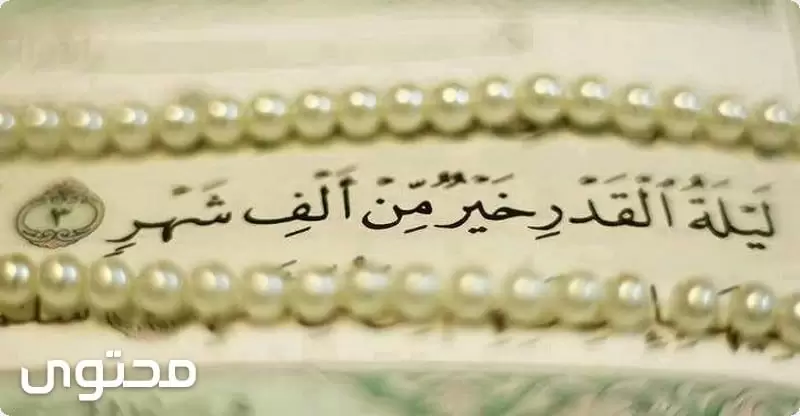 لَيْلَةُ الْقَدْرِ خَيْرٌ مِّنْ أَلْفِ شَهْرٍ ٣
محتوى